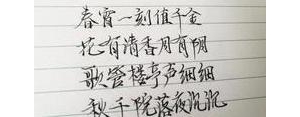 春宵一刻值千金
花有清香月有阴
歌管楼亭声细细
秋千院落夜沉沉